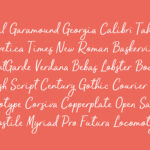 l Garamound Georgia Calibri Tah
vetica Times New Roman Baskervi
tGarde Verdana Bebas Lobster Bod
sh Script Century Gothic Courier
otype Corsiva Copperplate Open Sa
astile Myriad Pro Futura Locomot